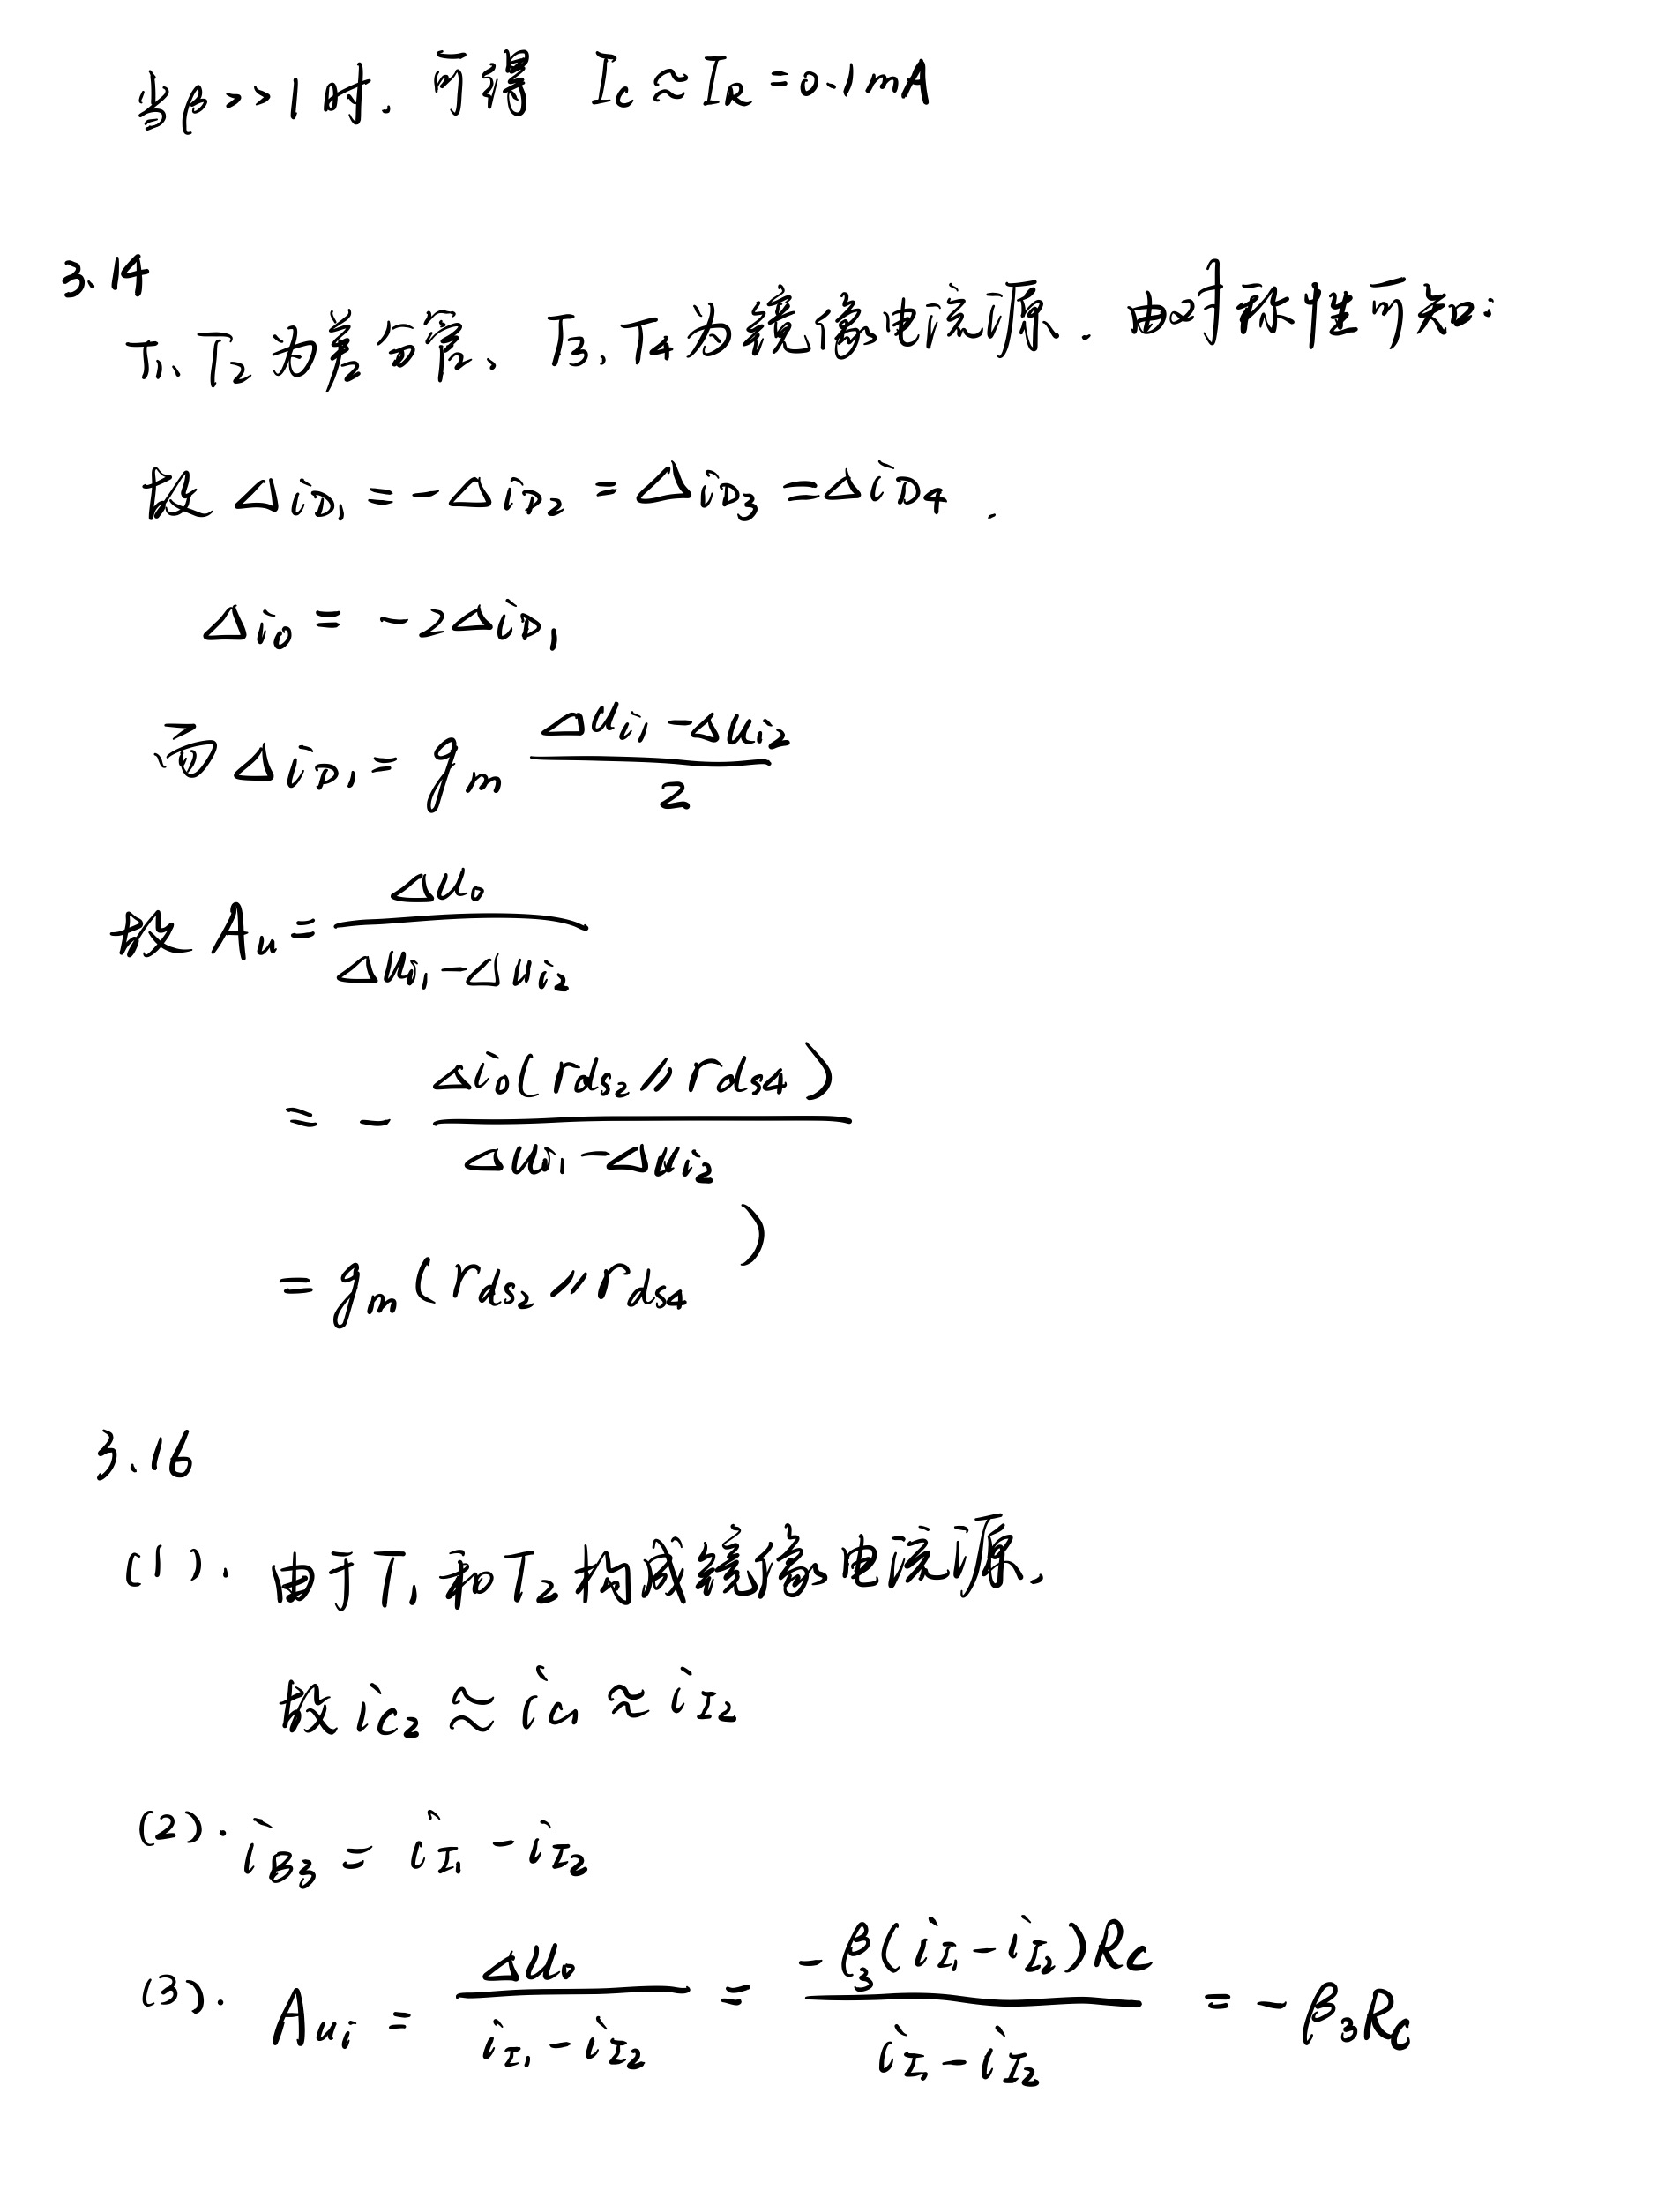 当β>>1时. 可得 Ic≈IR=0.1mA
3.14
T1、T2为差分管、T3、T4为镜像电流源. 由对称性可知:
故 ΔiD1=-ΔiD2=ΔiD3=ΔiD4.
Δio=-2ΔiD1
而ΔiD1=gm (Δui1-Δui2)/2
故 Au=Δuo/(Δui1-Δui2)
=-Δio(rds2//rds4)/(Δui1-Δui2)
=gm(rds2//rds4)
3.16
(1). 由于T1和T2构成镜像电流源.
故ic2≈ic1≈iI2
(2). iB3=iI1-iI2
(3). Aui=Δuo/(iI1-iI2)=-β3(iI1-iI2)Rc/(iI1-iI2)=-β3Rc